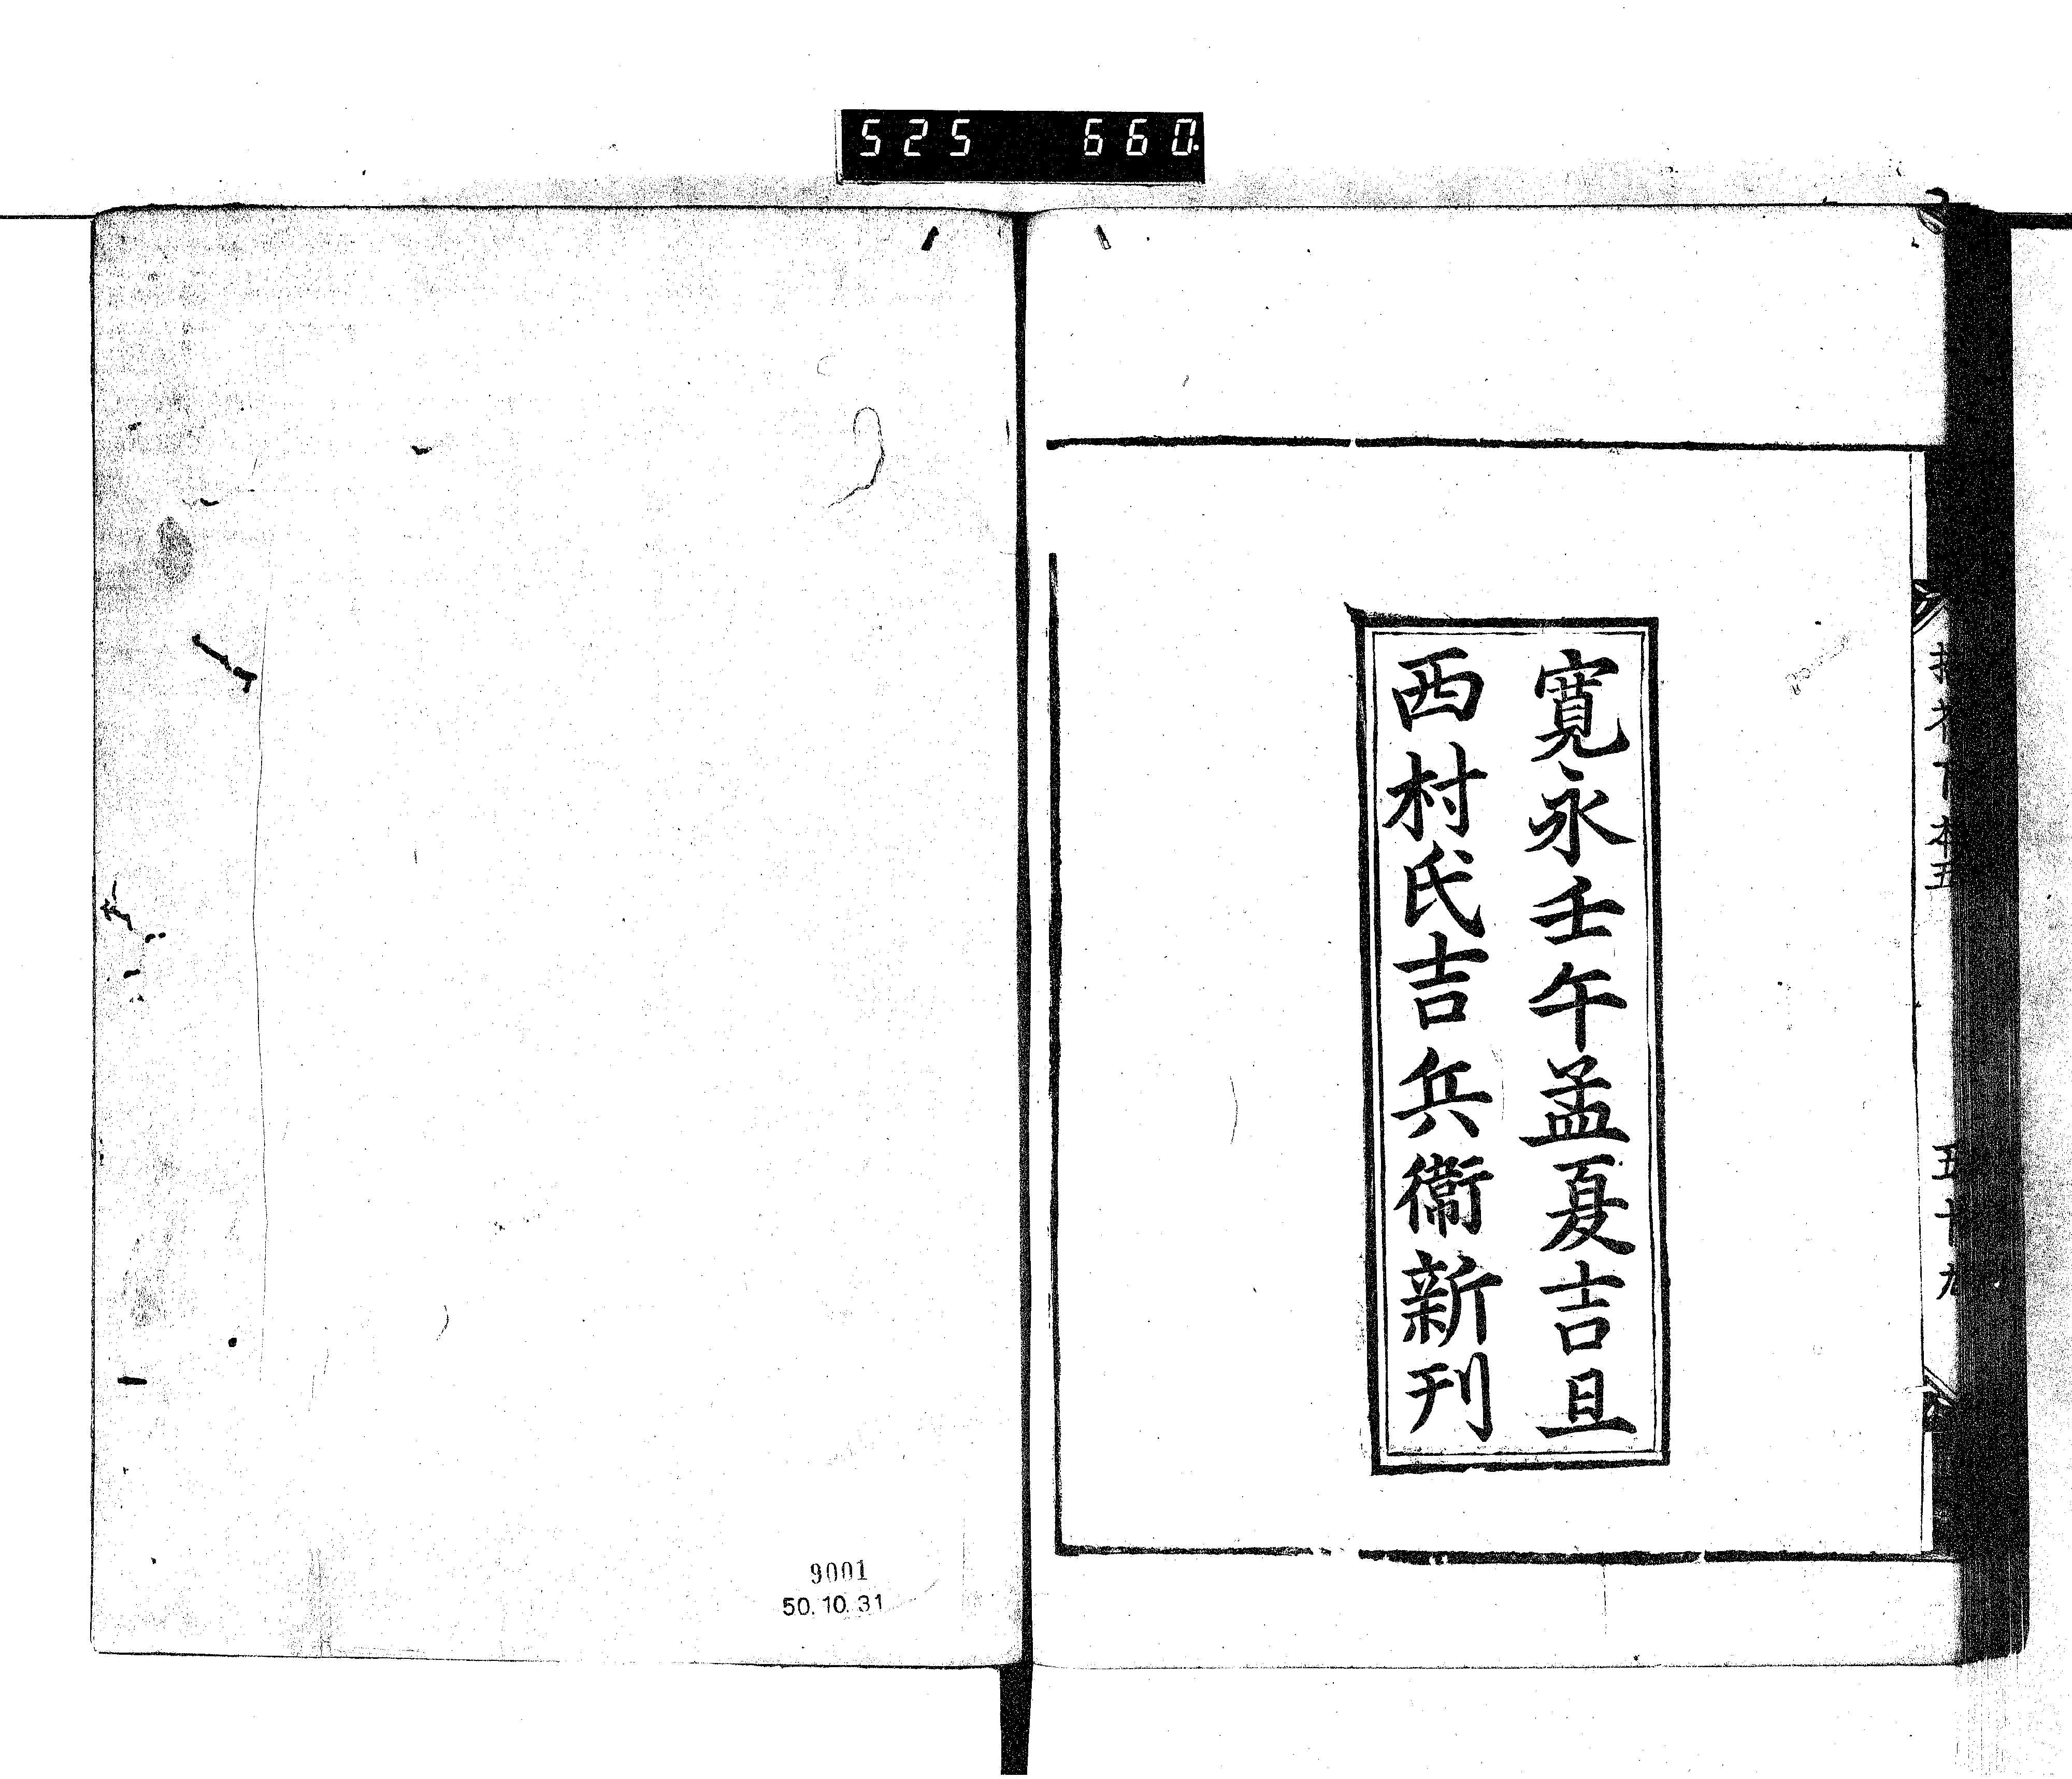 525 660.
寛永壬午孟夏吉旦
西村氏吉兵衞新刊
五十九
9001
50.10.31